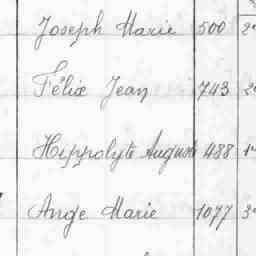 Joseph Marie 500
Félix Jean 743
Hippolyte Auguste 488
Ange Marie 1077